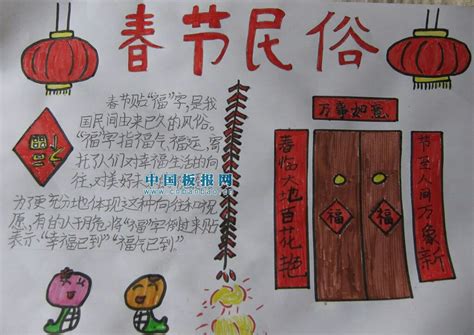 春节民俗
春节贴"福"字,是我
国民间由来已久的风俗。
"福"字指福气、福运,寄
托了人们对幸福生活的向
往,对美好未
为了更充分地体现这种向往和祝
愿,有的人干脆将"福"字倒过来贴
表示"幸福已到""福气已到"
福
万事如意
春临大地百花艳
节至人间万象新
福
福
中国板报网